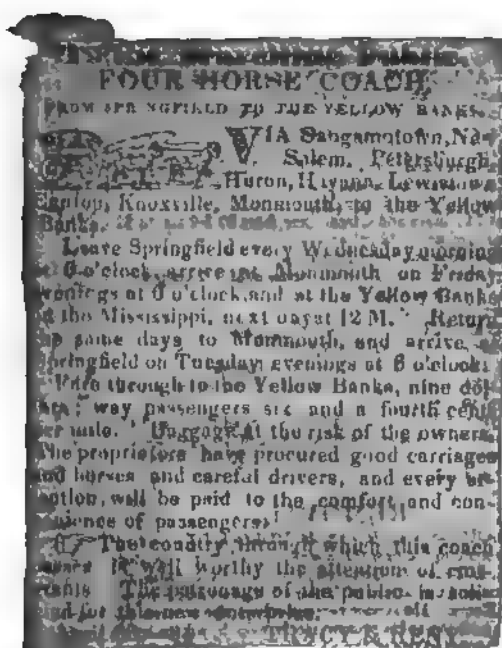 FOUR HORSE COACH,
FROM SPRINGFIELD TO THE YELLOW BANKS.
VIA Sangamotown, New
Salem, Petersburgh,
Huron, Havana, Lewistown
Canton, Knoxville, Monmouth, to the Yellow
Banks.
Leave Springfield every Wednesday morning
at 6 o'clock, arrive at Monmouth on Friday
evenings at 6 o'clock, and at the Yellow Banks
the Mississippi, next day at 12 M. Return
same days to Monmouth, and arrive
Springfield on Tuesday evenings at 6 o'clock.
Fare through to the Yellow Banks, nine dol
way passengers six and a fourth cents
per mile. Baggage at the risk of the owners
The proprietors have procured good carriages
and horses and careful drivers, and every at
tention, will be paid to the comfort and con
venience of passengers.
The country through which this coach
passes is well worthy the attention of
The patronage of the public is
for this new enterprise.